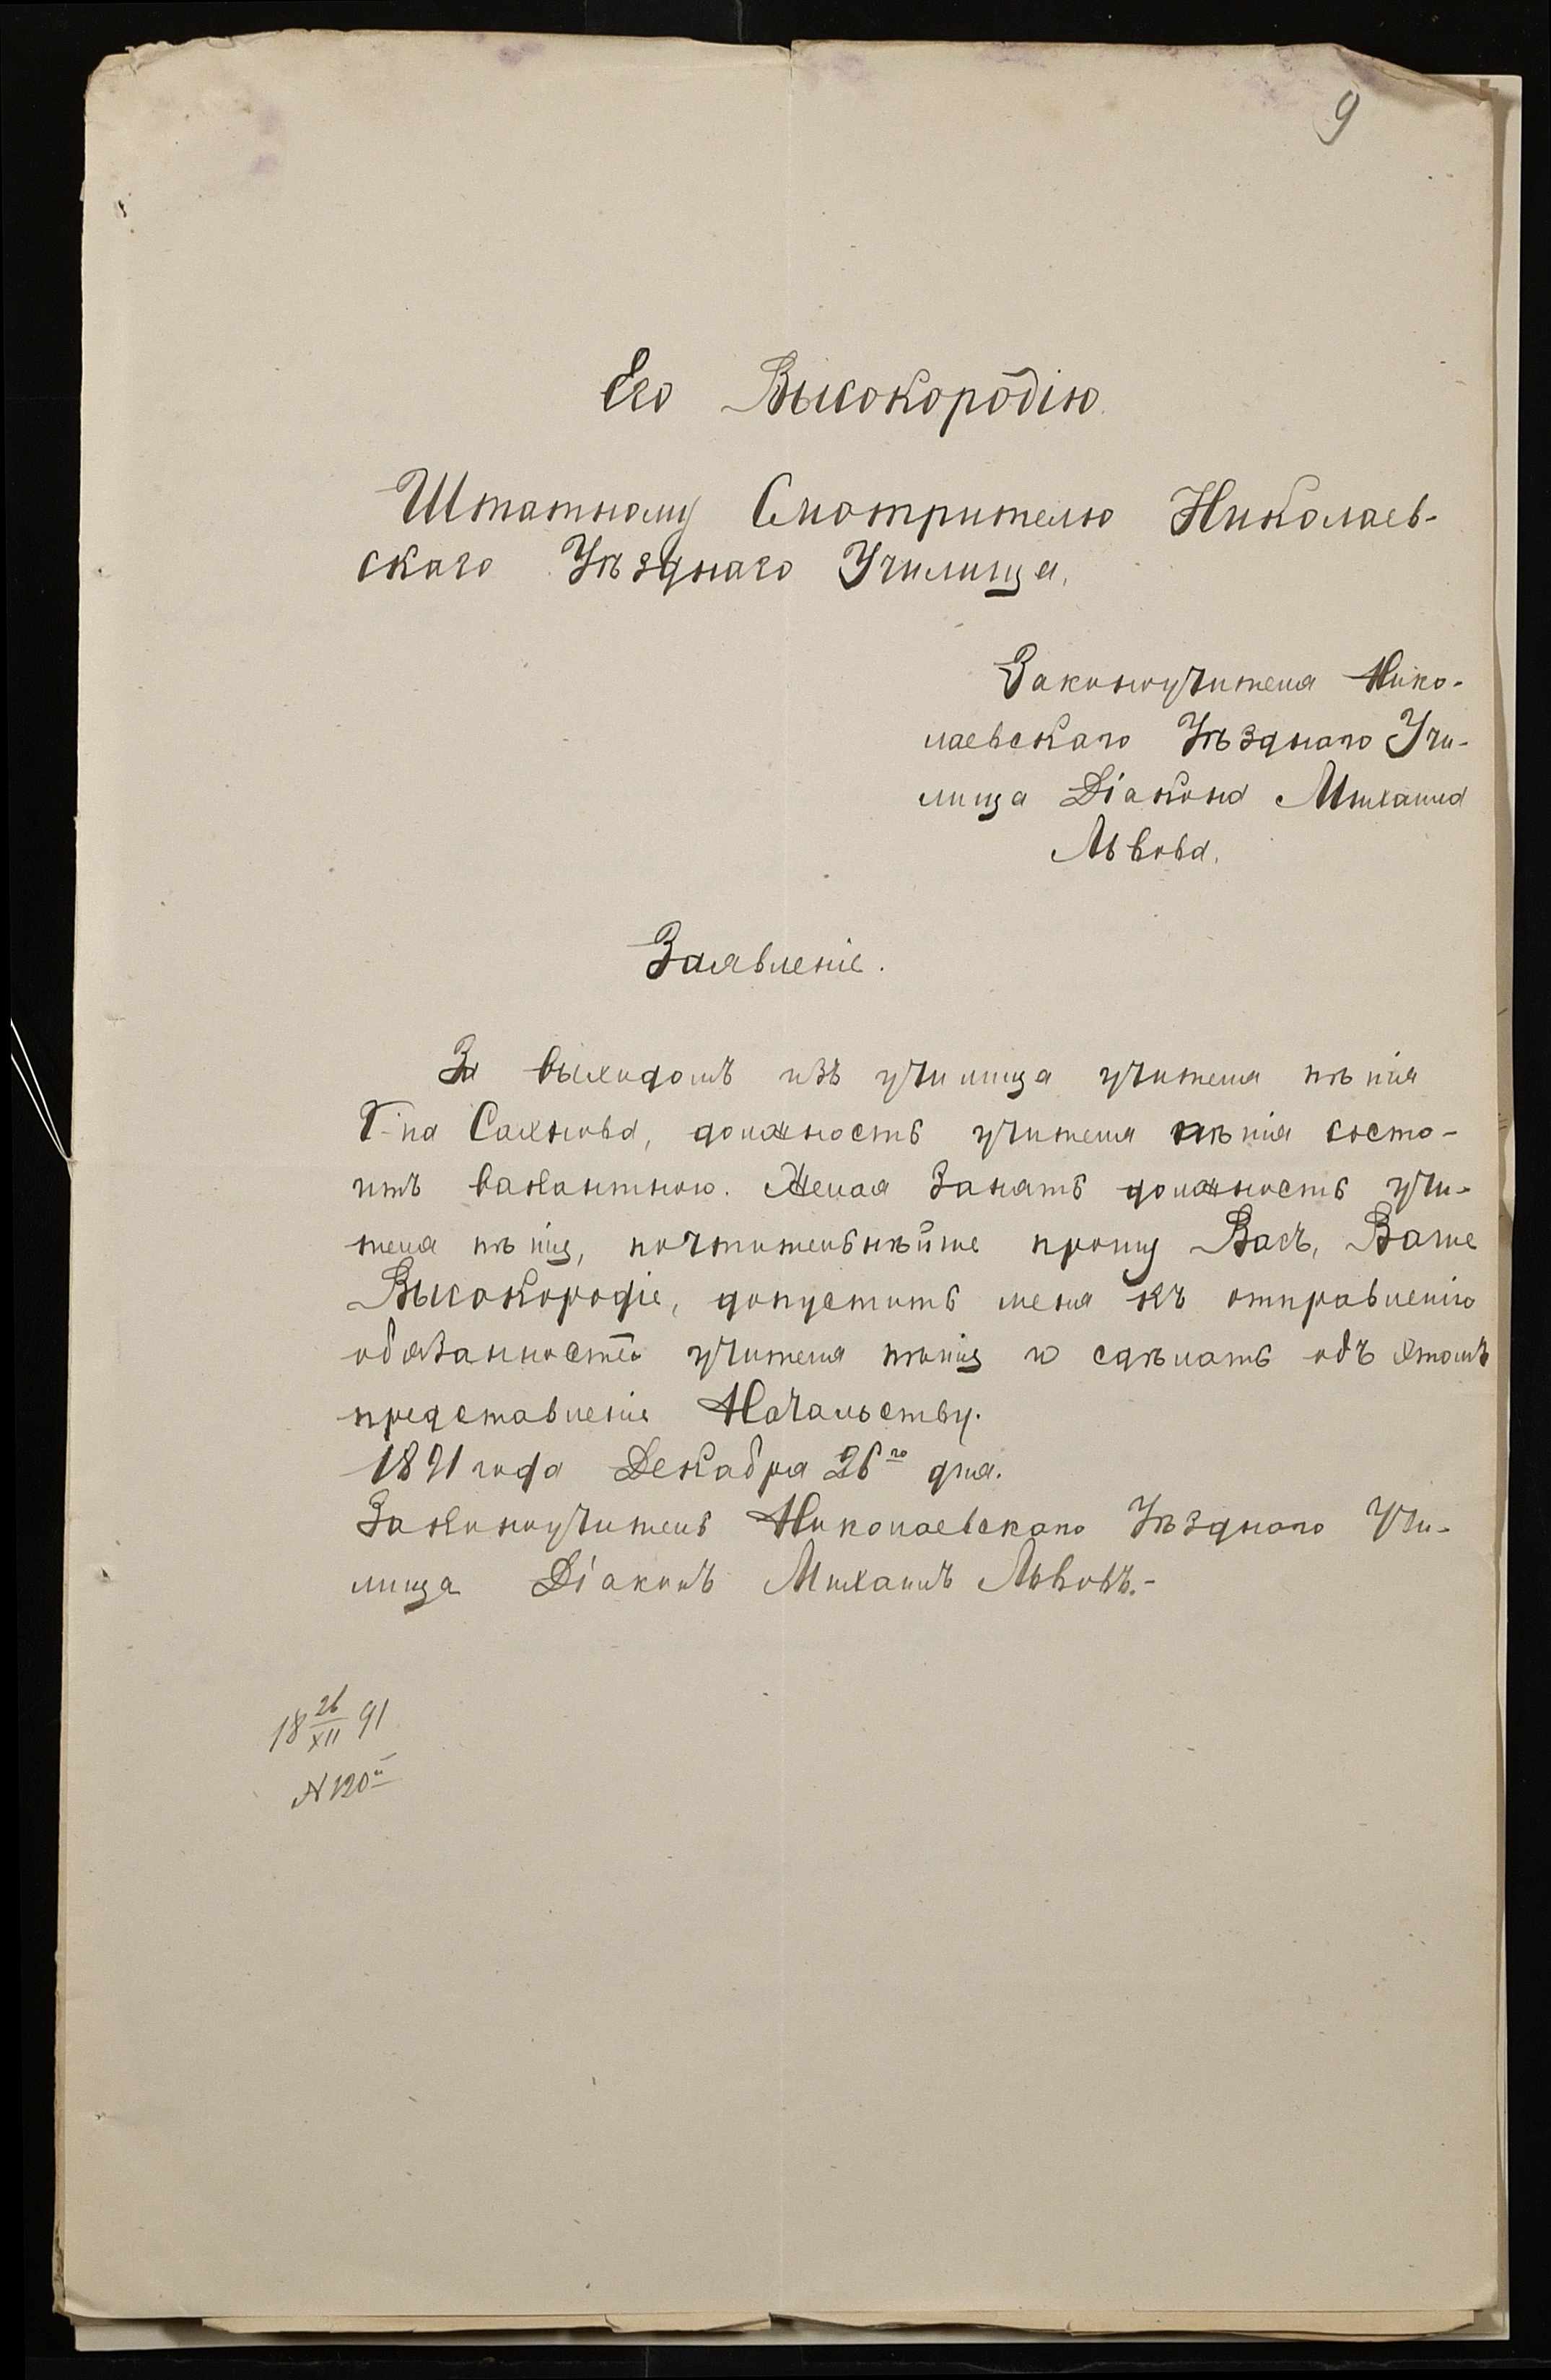 9
Его Высокородію
Штатному Смотрителю Николаев-
скаго Уѣзднаго Училища,
Законоучителя Нико-
лаевскаго Уѣзднаго Учи-
лища Діакона Михаила
Львова.
Заявленіе.
За выходомъ изъ училища учителя пѣнія
Г-на Сахнова, должность учителя пѣнія состо-
итъ вакантною. Желая занять должность учи-
теля пѣнія, почтительнѣйше прошу Васъ, Ваше
Высокородіе, допустить меня къ отправленію
обязанностей учителя пѣнія и сдѣлать объ этомъ
представленіе Начальству.
1891 года Декабря 26го дня.
Законоучитель Николаевскаго Уѣзднаго Учи-
лища Діаконъ Михаилъ Львовъ.-
18 26/XII 91
N 120й